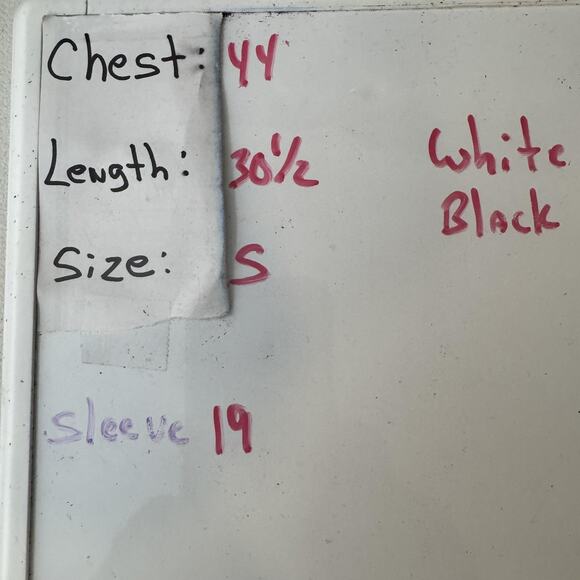 Chest: 44
Length: 30 1/2
White
Black
Size: S
Sleeve 19